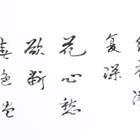 复深
花心愁
欲断
春色岂